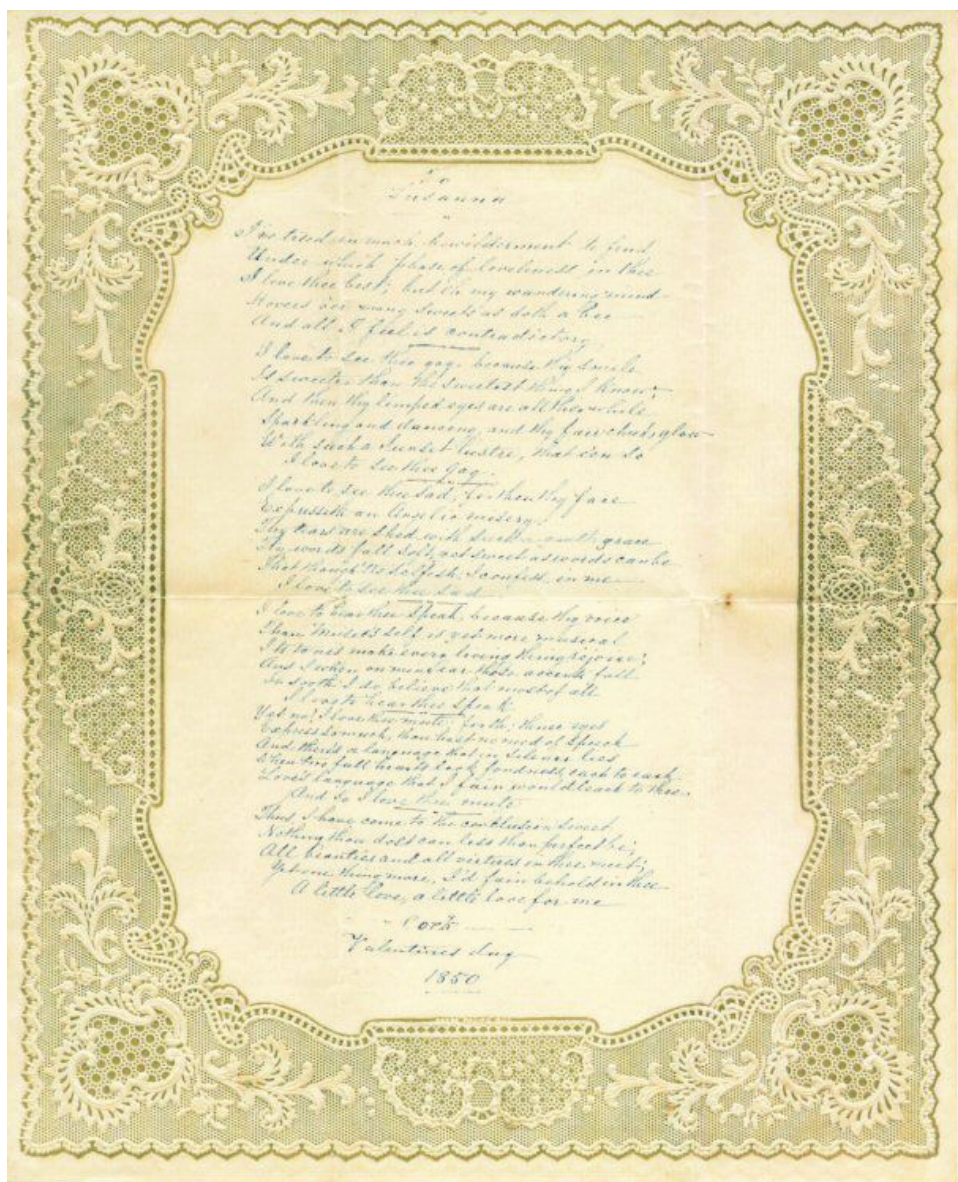 Susanna
I've tried in much bewilderment to find
Under which phase of loveliness in thee
I love thee best; but oh my wandering mind
Hovers o'er many sweets as doth a bee
And all I feel is contradictory
I love to see thee gay, because thy smile
Is sweeter than the sweetest thing I know;
And then thy limped eyes are all the while
Sparkling and dancing, and thy fair cheeks glow
With such a sunset lustre, that e'en so
I love to see thee gay.
I love to see thee sad, for then thy face
Expresseth an angelic misery;
Thy tears are shed with such a grace
Thy words fall soft, yet sweet as words can be
That though 'tis selfish, I confess, in me
I love to see thee sad
I love to hear thee speak, because thy voice
Than music's self is yet more musical
Its tones make every living thing rejoice;
And I when on mine ear those accents fall
In sooth I do believe that most of all
I love to hear thee speak
Yet no! I love thee mute; for oh, thine eyes
Express so much, thou hast no need of speech
And there's a language that in silence lies
When two full hearts look fondness each to each
Love's language that I fain would teach to thee
And so I love thee mute
Thus I have come to the conclusion sweet
Nothing thou dost can less than perfect be;
All beauties and all virtues in thee meet;
Yet one thing more, I'd fain behold in thee
A little love, a little love for me
Cork
Valentines day
1850